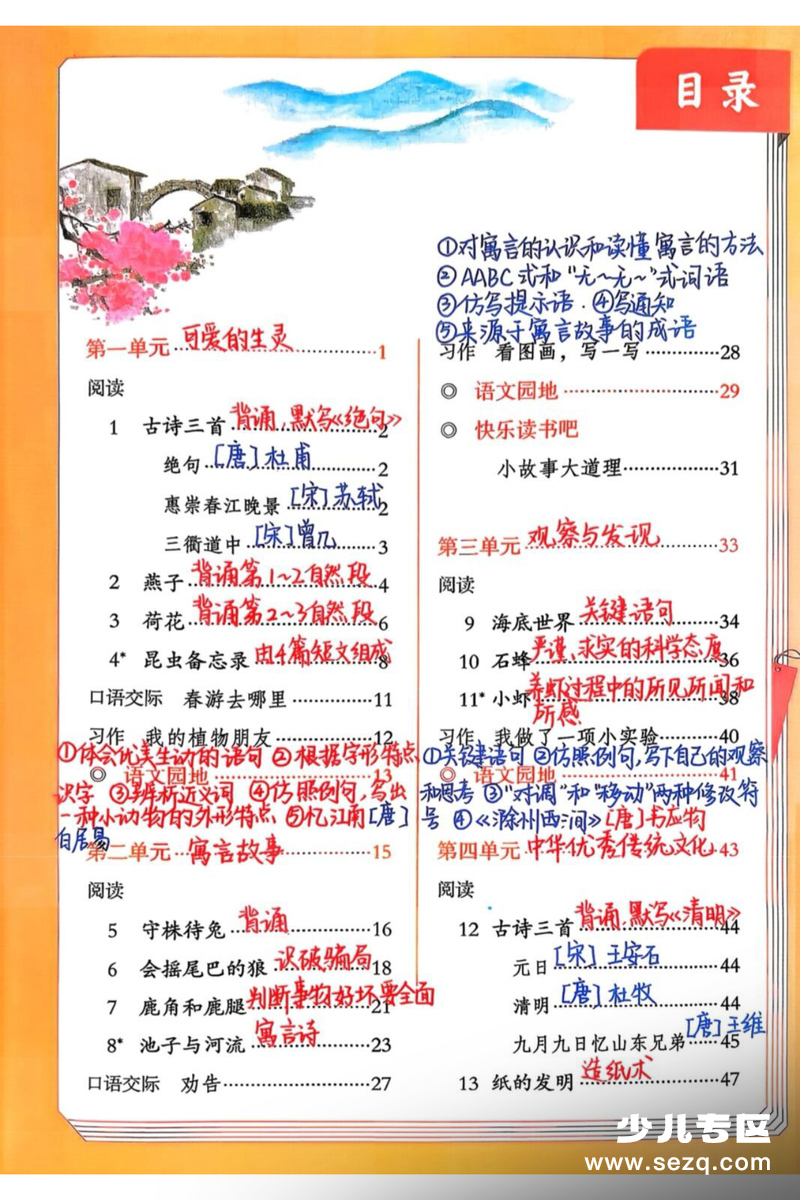 目录
第一单元 可爱的生灵 1
阅读
1 古诗三首 背诵.默写《绝句》 2
绝句 [唐]杜甫 2
惠崇春江晚景 [宋]苏轼 2
三衢道中 [宋]曾几 3
2 燕子 背诵第1~2自然段 4
3 荷花 背诵第2~3自然段 6
4* 昆虫备忘录 由4篇短文组成 8
口语交际 春游去哪里 11
习作 我的植物朋友 12
①体会优美生动的语句 ②根据字形特点
◎ 语文园地 13
识字 ③辨析近义词 ④仿照例句,写出
一种小动物的外形特点 ⑤忆江南[唐]
白居易
第二单元 寓言故事 15
阅读
5 守株待兔 背诵 16
6 会摇尾巴的狼 识破骗局 18
7 鹿角和鹿腿 判断事物好坏要全面 21
8* 池子与河流 寓言诗 23
口语交际 劝告 27
①对寓言的认识和读懂寓言的方法
②AABC式和“无~无~”式词语
③仿写提示语.④写通知
⑤来源于寓言故事的成语
习作 看图画,写一写 28
◎ 语文园地 29
◎ 快乐读书吧
小故事大道理 31
第三单元 观察与发现 33
阅读
9 海底世界 关键语句 34
10 石蜂 严谨、求实的科学态度 36
11* 小虾 养虾过程中的所见所闻和 38
所感
习作 我做了一项小实验 40
①关键语句 ②仿照例句,写下自己的观察
◎ 语文园地 41
和思考 ③“对调”和“移动”两种修改符
号 ④《滁州西涧》[唐]韦应物
第四单元 中华优秀传统文化 43
阅读
12 古诗三首 背诵.默写《清明》 44
元日 [宋]王安石 44
清明 [唐]杜牧 44
九月九日忆山东兄弟 [唐]王维 45
13 纸的发明 造纸术 47
少儿专区
www.sezq.com